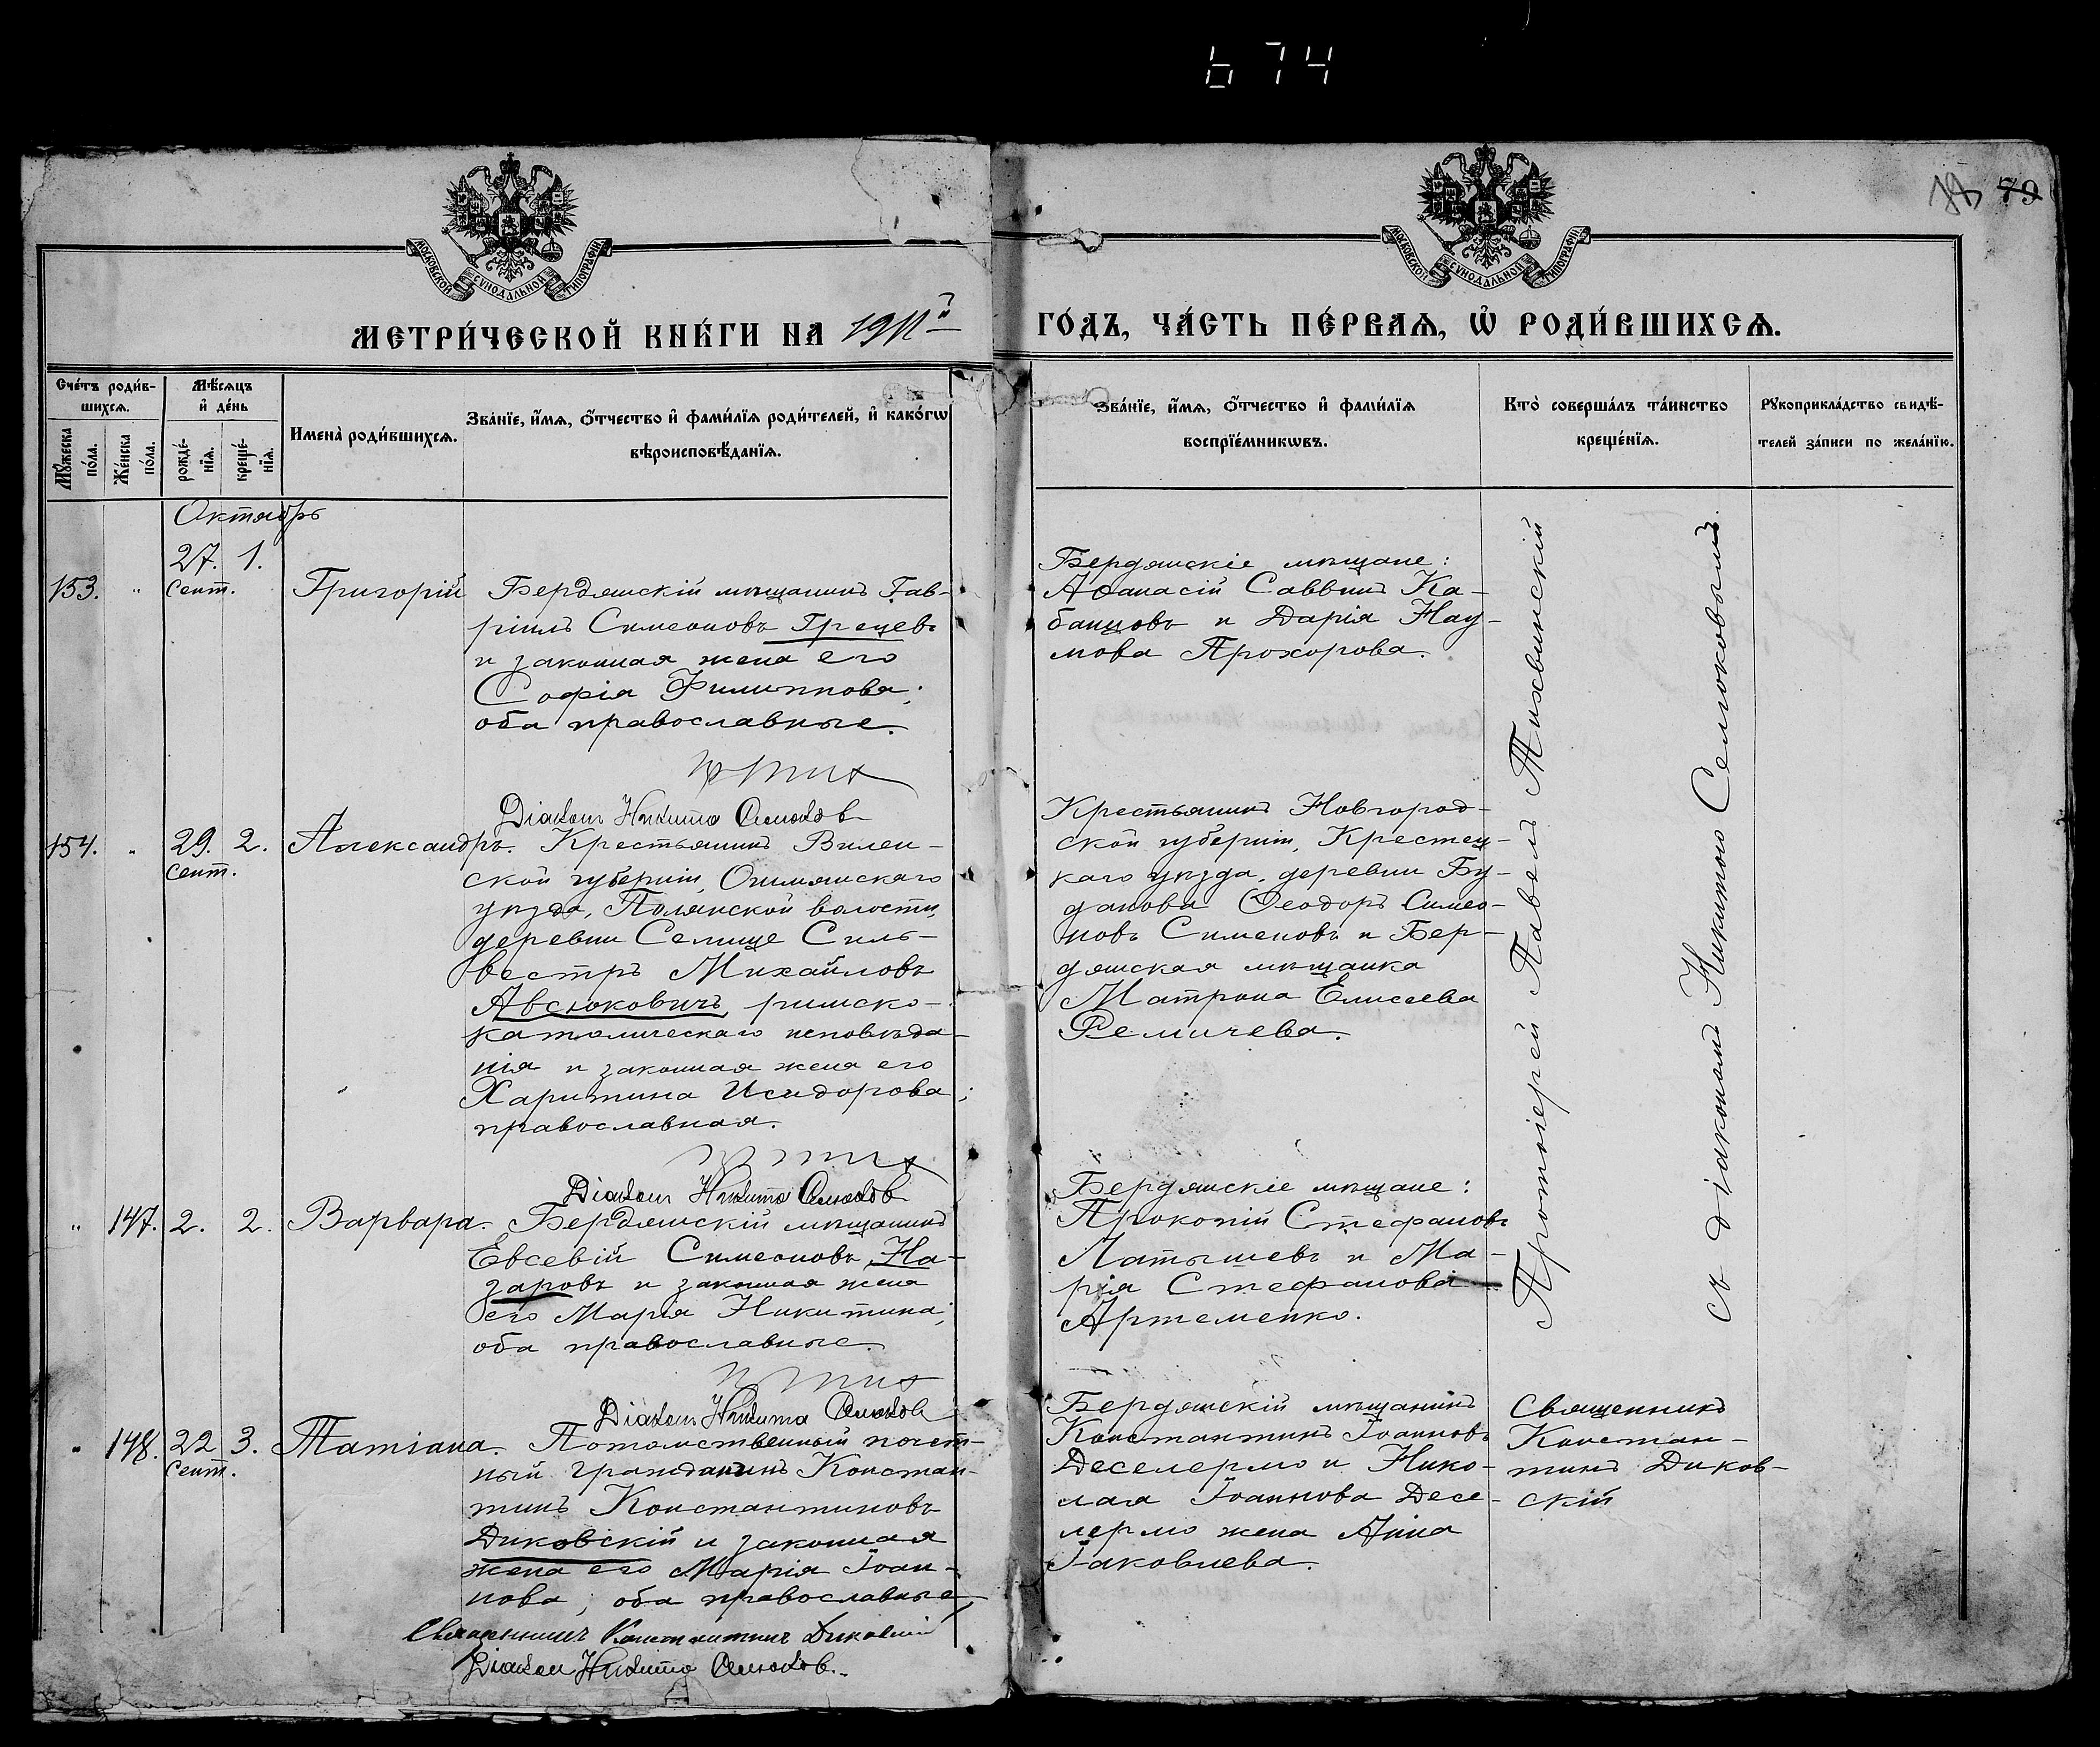 674
79
МОСКОВСКОЙ СѴНОДАЛЬНОЙ ТИПОГРАФІИ
МОСКОВСКОЙ СѴНОДАЛЬНОЙ ТИПОГРАФІИ
МЕТРИ́ЧЕСКОЙ КНИ́ГИ НА 1911й ГО́ДЪ, ЧА́СТЬ ПЕ́РВАѦ, Ѡ҆ РОДИ́ВШИХСѦ.
Сче́тъ роди́в-
шихсѧ.
Мꙋ́жеска
по́ла.
Же́нска
по́ла.
Мѣ́сѧцъ
и҆ де́нь
рожде́-
нїѧ.
креще́-
нїѧ.
Имена̀ роди́вшихсѧ.
Зва́нїе, и҆́мѧ, ѻ҆́тчество и҆ фами́лїѧ роди́телей, и҆ како́гѡ
вѣроисповѣ́данїѧ.
Зва́нїе, и҆́мѧ, ѻ҆́тчество и҆ фами́лїѧ
воспрїе́мникѡвъ.
Кто̀ соверша́лъ та́инство
креще́нїѧ.
Рꙋкоприкла́дство свидѣ́-
телей за́писи по жела́нїю.
Октябрь
153. " 27. 1.
Сент.
Григорій
Бердянскій мѣщанинъ Гав-
ріилъ Симеоновъ Грецевъ
и законная жена его
Софія Филиппова;
оба православные.
Діаконъ Никита Селюков
Бердянскіе мѣщане:
Афанасій Саввинъ Ка-
банцовъ и Дарія Нау-
мова Прохорова.
154. " 29. 2.
Сент.
Александръ.
Крестьянинъ Вилен-
ской губерніи, Ошмянскаго
уѣзда, Полянской волости,
деревни Селище Силь-
вестръ Михайловъ
Авсюковичъ, римско-
католическаго исповѣда-
нія и законная жена его
Харитина Исидорова;
православная.
Діаконъ Никита Селюков
Крестьянинъ Новгород-
ской губерніи, Крестец-
каго уѣзда, деревни Бу-
данова Феодоръ Симео-
новъ Сименовъ и Бер-
дянская мѣщанка
Матрона Елисеева
Ремичева.
" 147. 2. 2.
Варвара.
Бердянскій мѣщанинъ
Евсевій Симеоновъ На-
заровъ и законная жена
его Марія Никитина;
оба православные.
Діаконъ Никита Селюков
Бердянскіе мѣщане:
Прокопій Стефановъ
Латышевъ и Ма-
рія Стефанова
Артеменко.
Протоіерей Павелъ Тихвинскій
съ діакономъ Никитою Селюковымъ.
" 148. 22 3.
Сент.
Татіана.
Потомственный почет-
ный гражданинъ Констан-
тинъ Константиновъ
Диковскій и законная
жена его Марія Іоан-
нова; оба православные
Священникъ Константинъ Диковскій
Діакон Никита Селюков.
Бердянскій мѣщанинъ
Константинъ Іоанновъ
Деселермо и Нико-
лая Іоаннова Десе-
лермо жена Анна
Іаковлева.
Священникъ
Констан-
тинъ Диков-
скій